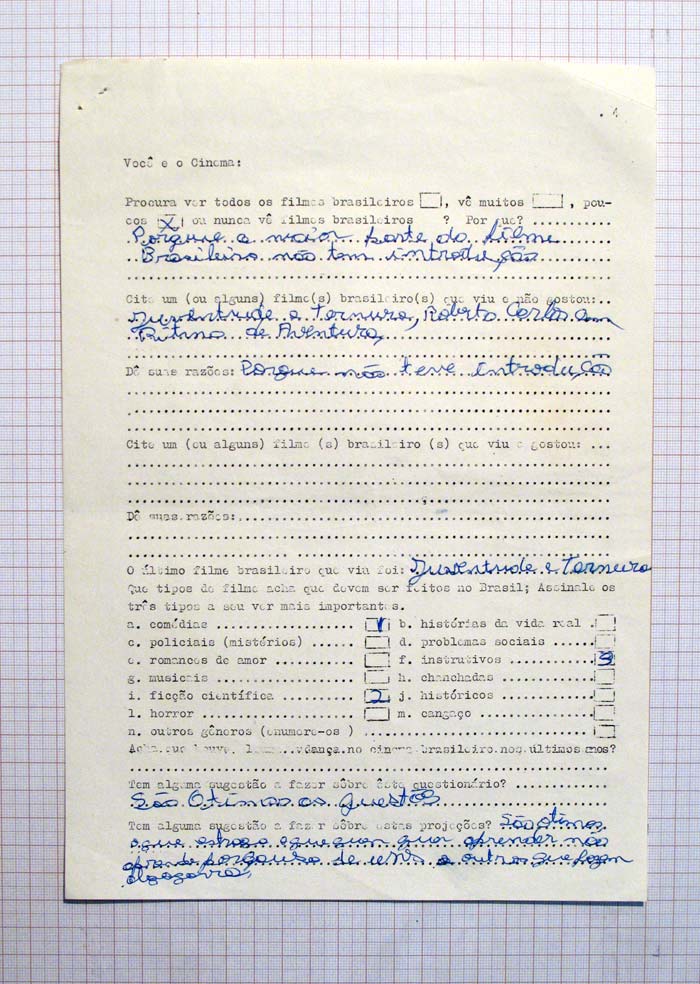 . 4
Você e o Cinema:
Procura ver todos os filmes brasileiros , vê muitos , pou-
cos X ou nunca vê filmes brasileiros ? Por que? ..........
Porque a maior parte do filme
Brasileiro não tem introdução
Cite um (ou alguns) filme(s) brasileiro(s) que viu e não gostou:..
Juventude e Ternura, Roberto Carlos em
Ritmo de Aventura,
Dê suas razões: Porque não teve introdução
Cite um (ou alguns) filme (s) brasileiro (s) que viu e gostou: ...
Dê suas razões:
O último filme brasileiro que viu foi: Juventude e Ternura
Que tipos de filme acha que devem ser feitos no Brasil; Assinale os
três tipos a seu ver mais importantes.
a. comédias 1 b. histórias da vida real .
c. policiais (mistérios) d. problemas sociais
e. romances de amor f. instrutivos 3
g. musicais h. chanchadas
i. ficção científica 2 j. históricos
l. horror m. cangaço
n. outros gêneros (enumere-os )
Acha que houve mudança no cinema brasileiro nos últimos anos?
Tem alguma sugestão a fazer sôbre êste questionário?
São Otimas as questõs
Tem alguma sugestão a fazer sôbre estas projeções? São otimas
oque estraga eque quem quer aprender não
aprende por causa de uns e outros que fazem
algazarra,